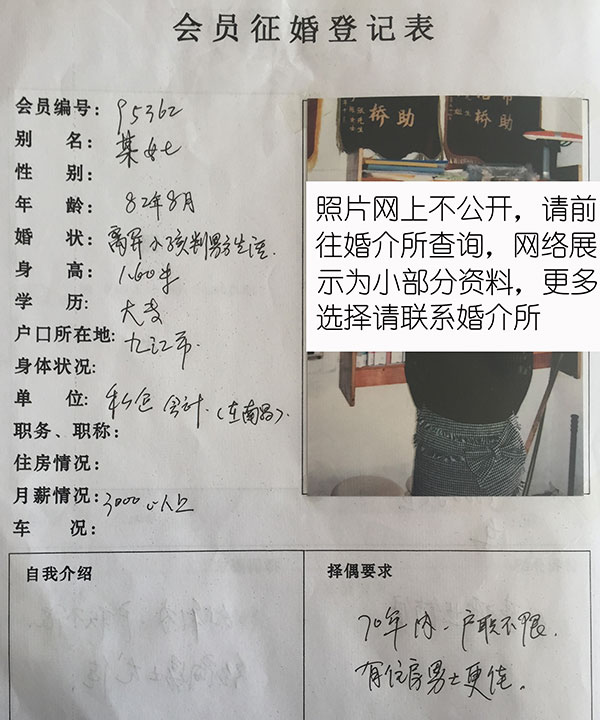 会员征婚登记表
会员编号：95362
别　名：某女士
性　别：
年　龄：82年8月
婚　状：离异小孩判男方生活.
身　高：1.60米
学　历：大专
户口所在地：九江市.
身体状况：
单　位：私企会计.（在南昌）.
职务、职称：
住房情况：
月薪情况：3000以上
车　况：
张先生
助
桥
助
桥
照片网上不公开，请前
往婚介所查询，网络展
示为小部分资料，更多
选择请联系婚介所
自我介绍
择偶要求
70年内.户职不限.
有住房男士更佳.